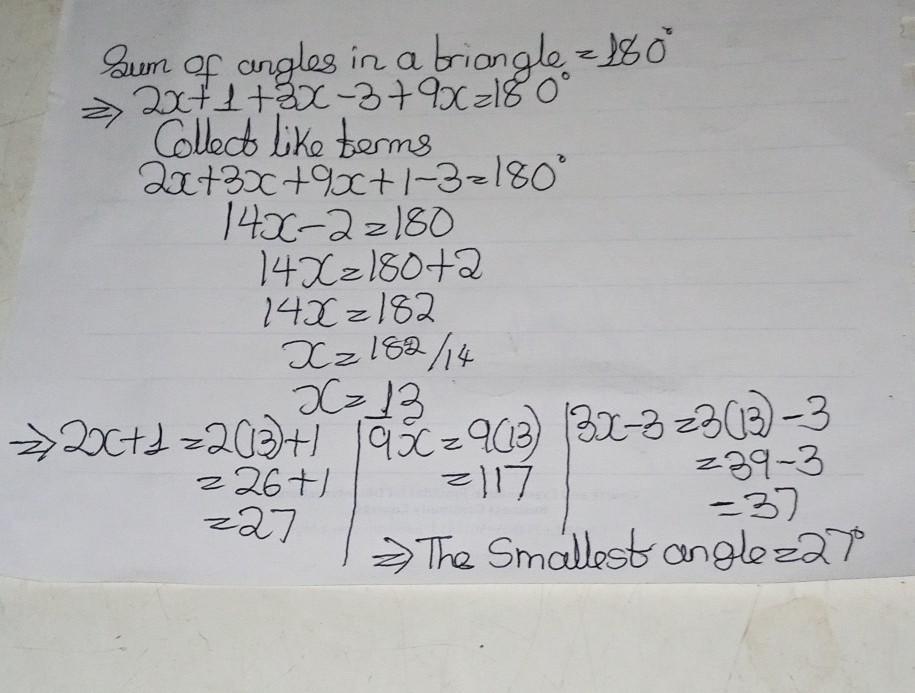 Sum of angles in a triangle = 180°
⇒ 2x+1+3x-3+9x=180°
Collect like terms
2x+3x+9x+1-3=180°
14x-2=180
14x=180+2
14x=182
x=182/14
x=13
⇒ 2x+1=2(13)+1
=26+1
=27
9x=9(13)
=117
3x-3=3(13)-3
=39-3
=37
⇒ The Smallest angle=27°